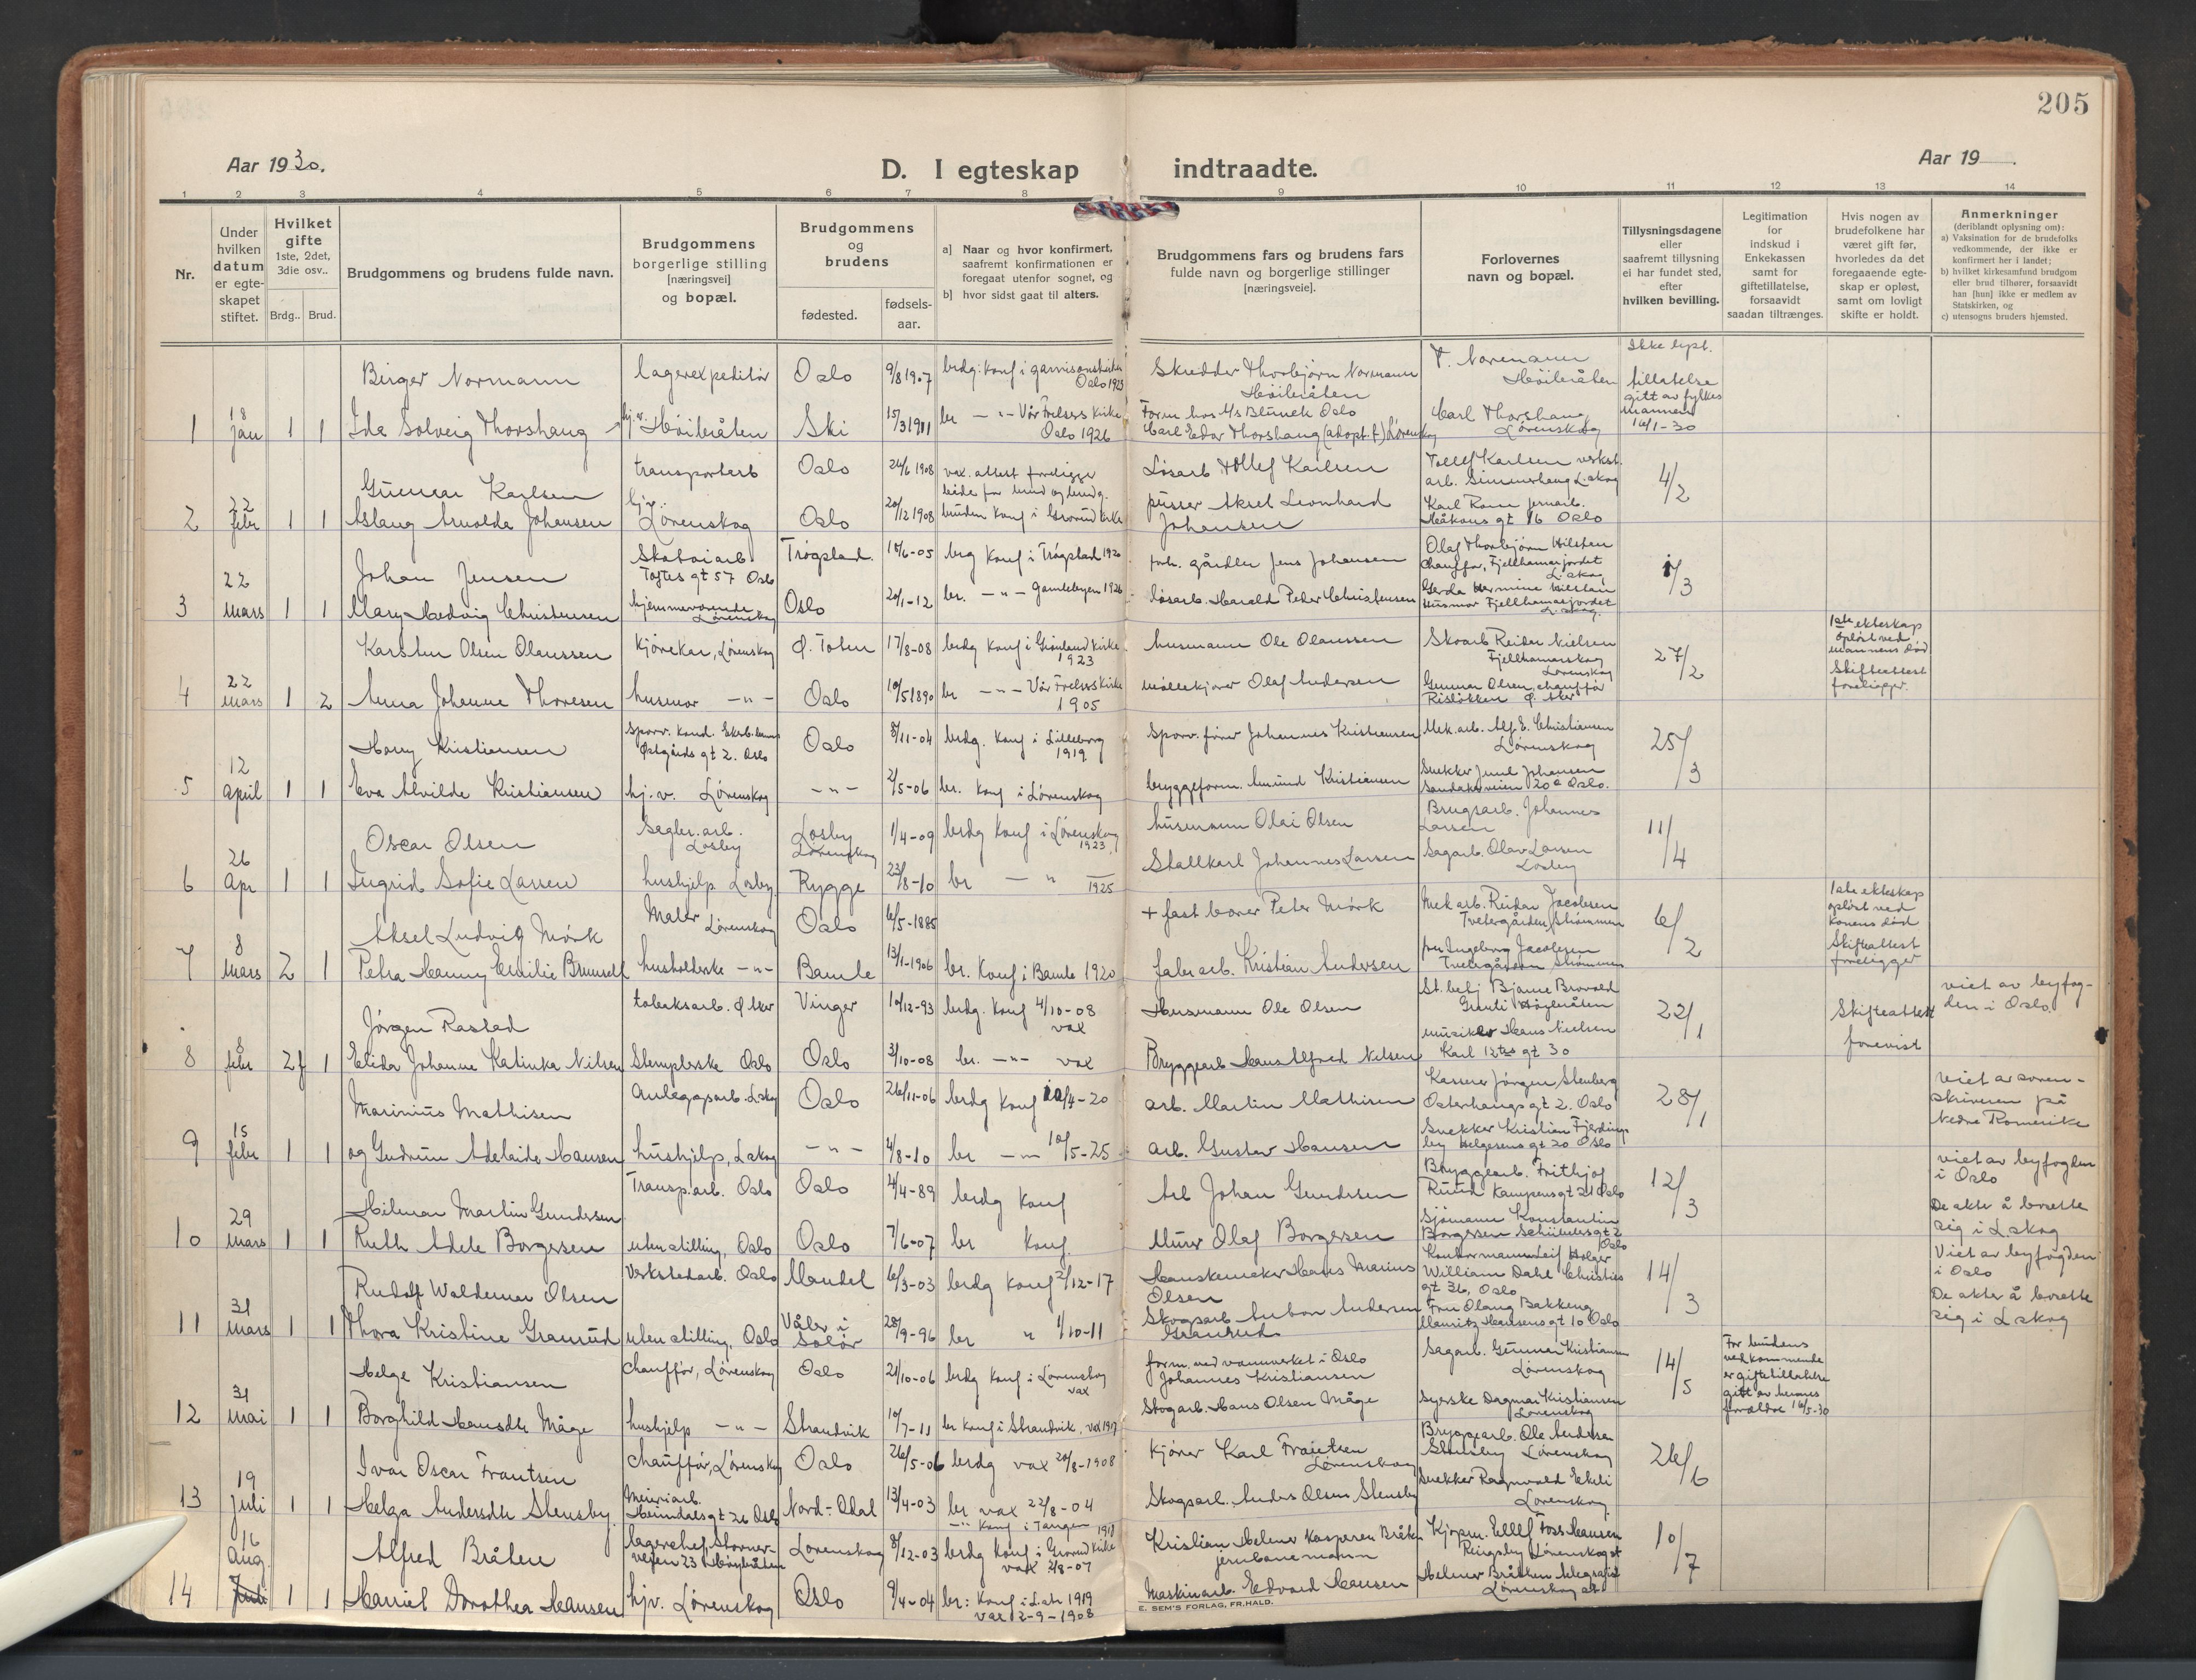 205
Aar 1930.
D. I egteskap indtraadte.
Aar 19 .
1 2 3 4 5 6 7 8 9 10 11 12 13 14
Nr.
Under hvilken datum er egteskapet stiftet.
Hvilket gifte 1ste, 2det, 3die osv..
Brdg.. Brud.
Brudgommens og brudens fulde navn.
Brudgommens borgerlige stilling [næringsvei] og bopæl.
Brudgommens og brudens
fødested.
fødsels-aar.
a] Naar og hvor konfirmert, saafremt konfirmationen er foregaat utenfor sognet, og
b] hvor sidst gaat til alters.
Brudgommens fars og brudens fars fulde navn og borgerlige stillinger [næringsveie].
Forlovernes navn og bopæl.
Tillysningsdagene eller saafremt tillysning ei har fundet sted, efter hvilken bevilling.
Legitimation for indskud i Enkekassen samt for giftetillatelse, forsaavidt saadan tiltrænges.
Hvis nogen av brudefolkene har været gift før, hvorledes da det foregaaende egteskap er opløst, samt om lovligt skifte er holdt.
Anmerkninger
(deriblandt oplysning om):
a) Vaksination for de brudefolks vedkommende, der ikke er konfirmert her i landet;
b) hvilket kirkesamfund brudgom eller brud tilhører, forsaavidt han [hun] ikke er medlem av Statskirken, og
c) utensogns bruders hjemsted.
Birger Normann lagerexpeditør Oslo 9/8 1907 brdg: konf i garnisonskirken Oslo 1923 Skredder Thorbjørn Normann Høibråten T. Normann Høibråten Ikke lyst. tillatelse gitt av fylkesmannen 16/1-30
1 18 jan 1 1 Ida Solveig Thorshaug hj.v. Høibråten Ski 15/3 1911 br — " — Vår Frelsers Kirke Oslo 1926 Form. hos A/s Blunck Oslo Carl Edor Thorshaug (adopt. f.) Lørenskog Carl Thorshaug Lørenskog
Gunnar Karlsen transportarb Oslo 24/6 1908 vax. attest foreligger både for brud og brudg. Løsarb. Tollef Karlsen Tollef Karlsen verkst. arb. Simmerhaug L.skog 4/2
2 22 febr 1 1 Aslaug Arnolda Johansen hjv. Lørenskog Oslo 20/12 1908 bruden konf i Grorud kirke pusser Aksel Leonhard Johansen Karl Roen jernarb. Håkons gt 16 Oslo
Johan Jensen Skotøiarb Toftes gt 57 Oslo Trøgstad. 18/6-05 brg konf i Trøgstad 1920 forh. gårdbr Jens Johansen Olaf Thorbjørn Hilstan Chauffør, Fjellhamarjordet L.skog 1/3
3 22 mars 1 1 Mary Hedvig Christensen hjemmeværende Lørenskog Oslo 20/1-12 br. — " — Gamlebyen 1926 løsarb. Harald Peder Christensen Gerda Hermine Hilstan Husmor Fjellhamarjordet L.skog.
Karsten Olsen Olaussen Kjørekar, Lørenskog Ø. Toten 17/8-08 brdg konf i Grønland Kirke 1923 husmann Ole Olaussen Skoarb Reidar Nielsen Fjellhamarskog Lørenskog 27/2 1ste ekteskap opløst ved mannens død Skifteattest foreligger.
4 22 mars 1 2 Anna Johanne Thoresen husmor — " — Oslo 10/5 1890 br — " — Vår Frelsers Kirke 1905 møllekjører Olaf Andersen Gunnar Olsen, chauffør Risløkken Ø. Aker
Harry Kristiansen Sporv. kond. Østgårds gt 2. Oslo Oslo 8/11-04 brdg. konf i Lilleborg 1919 Sporv. fører Johannes Kristiansen Mek. arb. Alf E. Christiansen Lørenskog 25/3
5 12 April 1 1 Eva Alvilde Kristiansen hj. v. Lørenskog — " — 2/5-06 br. konf i Lørenskog bryggeform. Amund Kristiansen Snekker Juul Johansen Sandakerveien 20a Oslo.
Oscar Olsen Sagbr. arb. Losby Losby Lørenskog 1/4-09 brdg konf i Lørenskog 1923 husmann Olai Olsen Brugsarb. Johannes Larsen 11/4
6 26 Apr 1 1 Ingrid Sofie Larsen hushjelp Losby Rygge 23/8-10 br — " — 1925 Stallkarl Johannes Larsen Sagarb. Olav Larsen Losby
Aksel Ludvig Mørk Maler Lørenskog Oslo 6/5-1885 + fast borer Peter Mørk Mek arb. Reidar Jacobsen Tvetergården, Strømmen 6/2 1ste ekteskap opløst ved konens død Skifteattest foreligger
7 8 mars 2 1 Petra Hanny Emilie Brunsell husholderske — " — Bamle 13/1-1906 br. konf i Bamle 1920 fabr. arb. Kristian Andersen fru Ingeborg Jacobsen Tvetergården Strømmen
Jørgen Rastad tobaksarb. Ø Aker Vinger 10/12-93 brdg. konf 4/10-08 vax Husmann Ole Olsen St. betj Bjarne Brovold Granli Høybråten 22/1 Skifteattest forevist viet av byfogden i Oslo.
8 8 febr 2f 1 Elida Johanne Katinka Nilsen Stemplerske Oslo Oslo 3/10-08 br. — " — vax Bryggearb Hans Alfred Nilsen musiker Hans Nielsen Karl 12tes gt 30
Marinius Mathisen Anleggsarb. L.skog Oslo 26/11-06 brdg konf 10/4-20 arb. Martin Mathisen Kasserer Jørgen Stenberg Osterhaugs gt 2. Oslo 28/1 viet av sorenskriveren på Nedre Romerike
9 15 febr 1 1 og Gudrun Adelaide Hansen hushjelp, L.skog — " — 4/8-10 br — " — 10/5-25 arb. Gustav Hansen Snekker Kristian Fjerdingby Helgesens gt 20 Oslo
Hilmar Martin Gundersen Transp. arb. Oslo Oslo 4/4-89 brdg konf Arb Johan Gundersen Bryggearb. Frithjof Ruud Kampens gt 21 Oslo 12/3 viet av byfogden i Oslo De akter å bosette sig i L.skog
10 29 mars 1 1 Ruth Adele Borgersen uten stilling, Oslo Oslo 7/6-07 br konf. Murer Olaf Borgersen Sjømann Konstantin Borgersen Schübelers gt 2 Oslo
Rudolf Waldemar Olsen Verkstedarb. Oslo Mandal 6/3-03 brdg konf 2/12-17 Hanskemaker Hans Marius Olsen Kontormann Leif Holger William Dahl Christies gt 36, Oslo 14/3 Viet av byfogden i Oslo De akter å bosette sig i L.skog
11 31 mars 1 1 Thora Kristine Granrud uten stilling, Oslo Våler i Solør 28/9-96 br " 1/10-11 Skogsarb Anton Andersen Granrud Fru Olaug Bakkeng Mauritz Hansens gt 10 Oslo
Helge Kristiansen Chauffør, Lørenskog Oslo 21/10-06 brdg konf i Lørenskog vax form. ved vannverket i Oslo Johannes Kristiansen Sagarb. Gunnar Kristiansen Lørenskog 14/5 For brudens vedkommende er giftetillatelse gitt av hennes foreldre 16/5-30
12 31 mai 1 1 Borghild Hansdtr Måge hushjelp — " — Strandvik 10/7-11 br konf i Strandvik, vax 1917 Skogarb. Hans Olsen Måge Syerske Dagmar Kristiansen Lørenskog
Ivar Oscar Frantsen Chauffør, Lørenskog Oslo 26/5-06 brdg vax 20/8-1908 Kjører Karl Frantsen Lørenskog Bryggearb. Ole Andersen Stensby Lørenskog 26/6
13 19 Juli 1 1 Helga Andersdtr Stensby. Meieriarb. Heimdals gt 26 Oslo Nord-Odal 13/4-03 br vax 22/8-04 — " — konf i Tangen 1918 Skogsarb. Anders Olsen Stensby Snekker Ragnvald Ekeli Lørenskog
Alfred Bråten lagerchef, Stovnerveien 23 Høybråten Lørenskog 8/12-03 brdg konf i Grorud Kirke vax 2/8-07 Kristian Helmer Kaspersen Bråten jernbanemann Kjøpm. Ellef Foss Hansen Ringsby Lørenskog st 10/7
14 16 Aug. Juli 1 1 Harriet Dorothea Hansen hjv. Lørenskog Oslo 9/4-04 br: konf i L.skog 1919 vax 2-9-1908 Maskinarb. Edvard Hansen Helmer Bråthen telegrafist Lørenskog st
E. SEM'S FORLAG, FR.HALD.